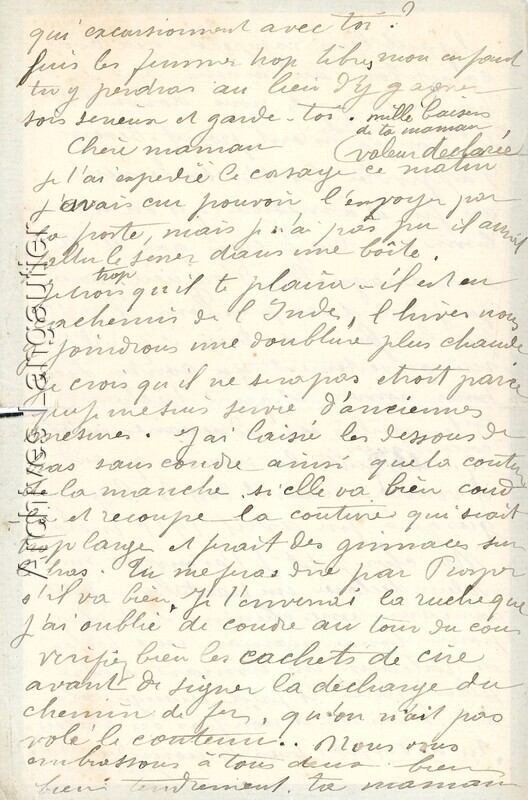 qui excursionnent avec toi ?
fuis les femmes trop libres, mon enfant
tu y perdras au lieu d'y gagner
sois serieux et garde-toi. mille baisers
de ta maman
Chère maman (valeur déclarée
je t'ai expedié le corsage ce matin
j'avais cru pouvoir l'envoyer par
la poste, mais je n'ai pas pu il aurait
fallu le serrer dans une boîte.
trop
Je crois qu'il te plaira - il est en
cachemire de l'Inde, l'hiver nous
y joindrons une doublure plus chaude
Je crois qu'il ne sera pas etroit parce
que je me suis servie d'anciennes
mesures. J'ai laissé les dessous de
bras sans coudre ainsi que la couture
de la manche, si elle va bien couds
la et recoupe la couture qui serait
trop large et ferait des grimaces sur
le bras. Tu me feras dire par Prosper
s'il va bien, Je t'enverrai la ruche que
j'ai oublié de coudre au tour du cou
verifiez bien les cachets de cire
avant de signer la décharge du
chemin de fer, qu'on n'ait pas
volé le contenu.. Nous vous
embrassons à tous deux bien
bien tendrement ta maman
Archives Langautier